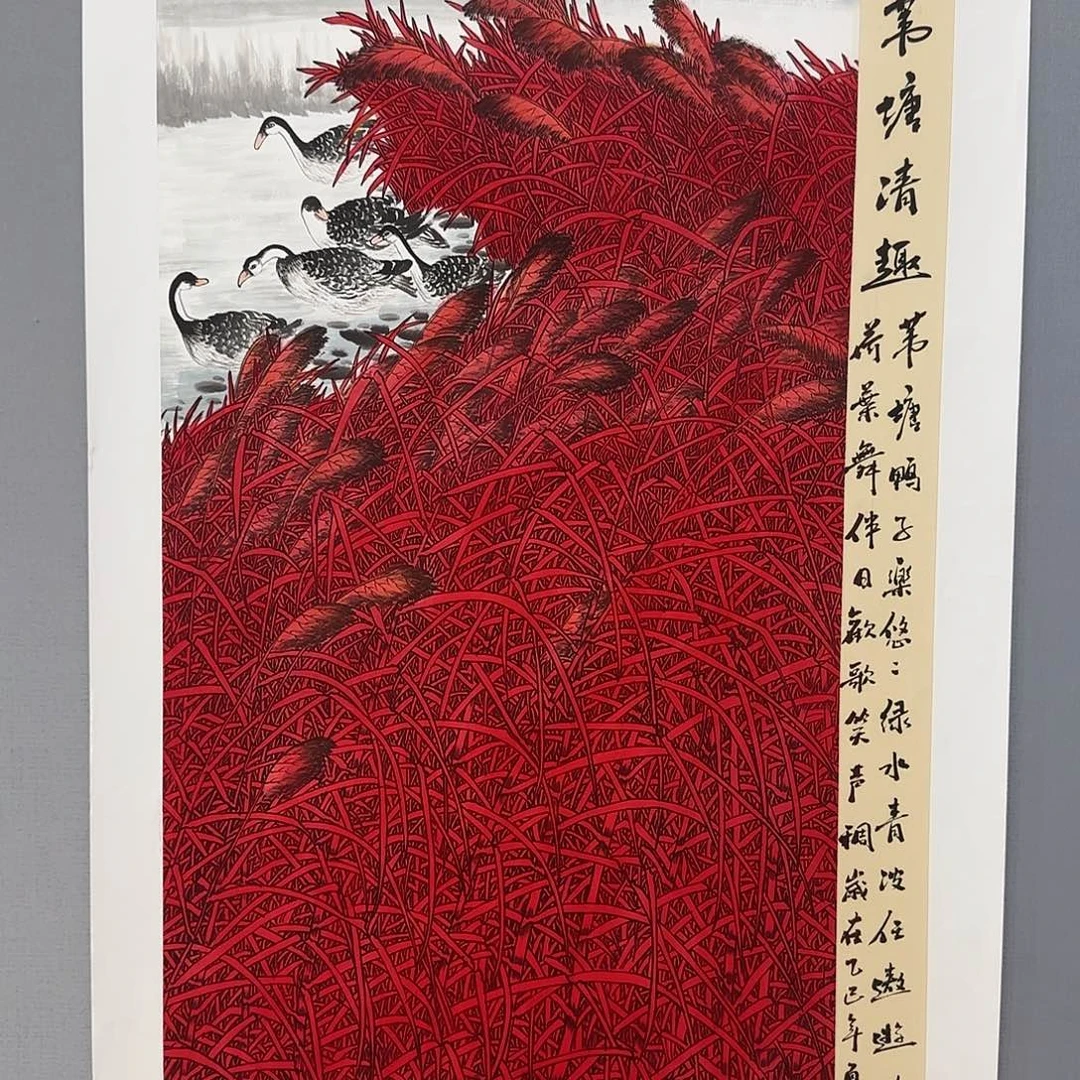 苇塘清趣
苇塘鸭子乐悠〻绿水青波任遨游
荷叶舞伴日欢歌笑声稠岁在乙巳年夏